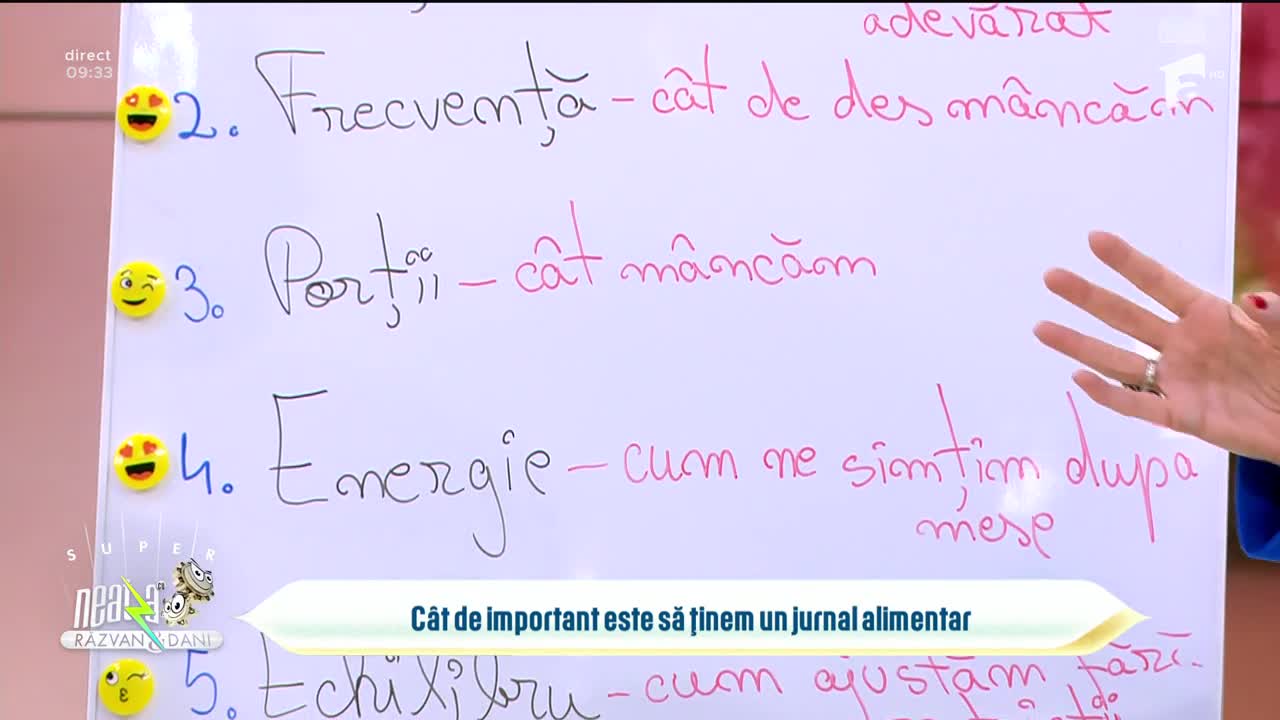 adevărat
direct
09:33
HD
2. Frecvență - cât de des mâncăm
3. Porții - cât mâncăm
4. Energie - cum ne simțim dupa
mese
SUPER
neatza
RĂZVAN & DANI
Cât de important este să ținem un jurnal alimentar
5. Echilibru - cum ajustăm fără